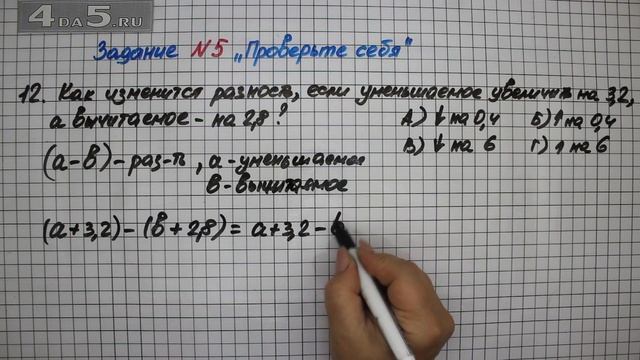 4DA5.RU
Задание №5 „Проверьте себя"
12. Как изменится разность, если уменьшаемое увеличить на 3,2,
а вычитаемое - на 2,8?
А) ↓ на 0,4 Б) ↑ на 0,4
В) ↓ на 6 Г) ↑ на 6
(a-b) - раз-ть, a - уменьшаемое
b - вычитаемое
(a+3,2) - (b+2,8) = a+3,2 -